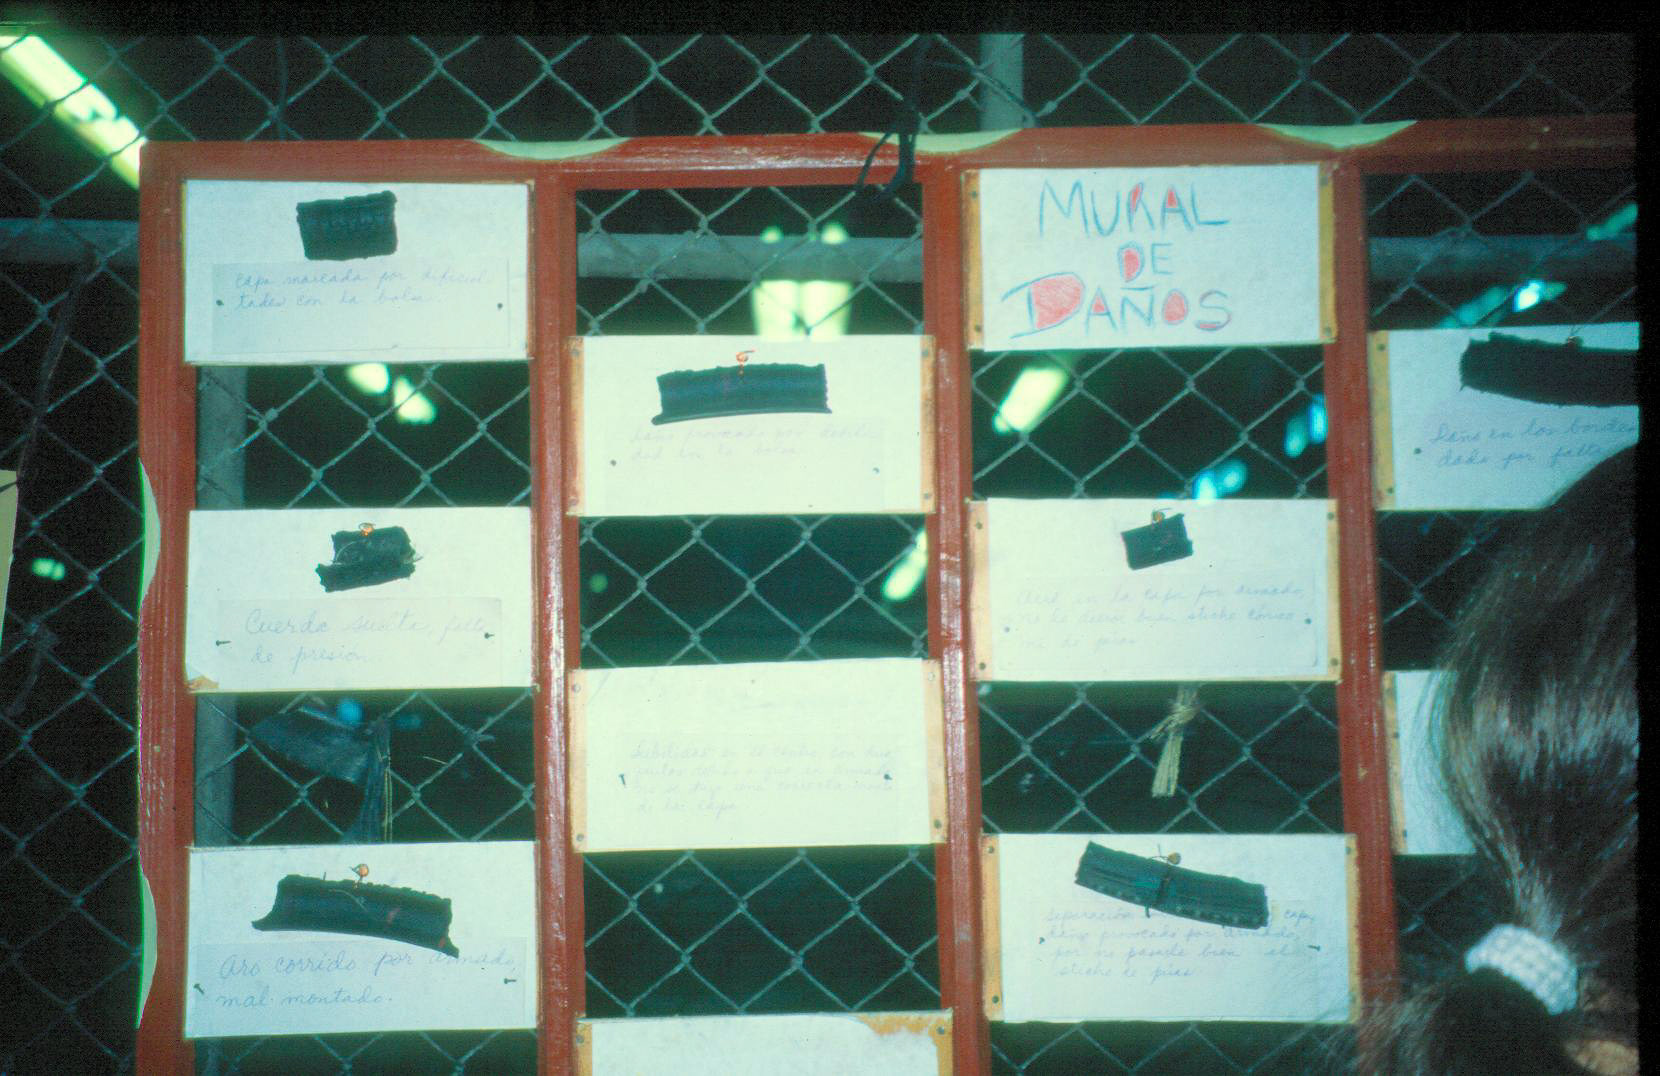 Capa marcada por dificul-
tades con la bolsa.
Cuerda suelta, falta
de presión.
Aro corrido por armado,
mal montado.
Daño provocado por debili-
dad en la bolsa
Debilidad en el centro con
debido a que en armado
no se hizo una correcta
de las capas
MURAL
DE
DAÑOS
en la capa por armado,
no le dieron buen stiche
de púas
Separación capa,
daño provocado por armado
por no pasarle bien el
stiche de púas
Daño en los bordes
dado por falta